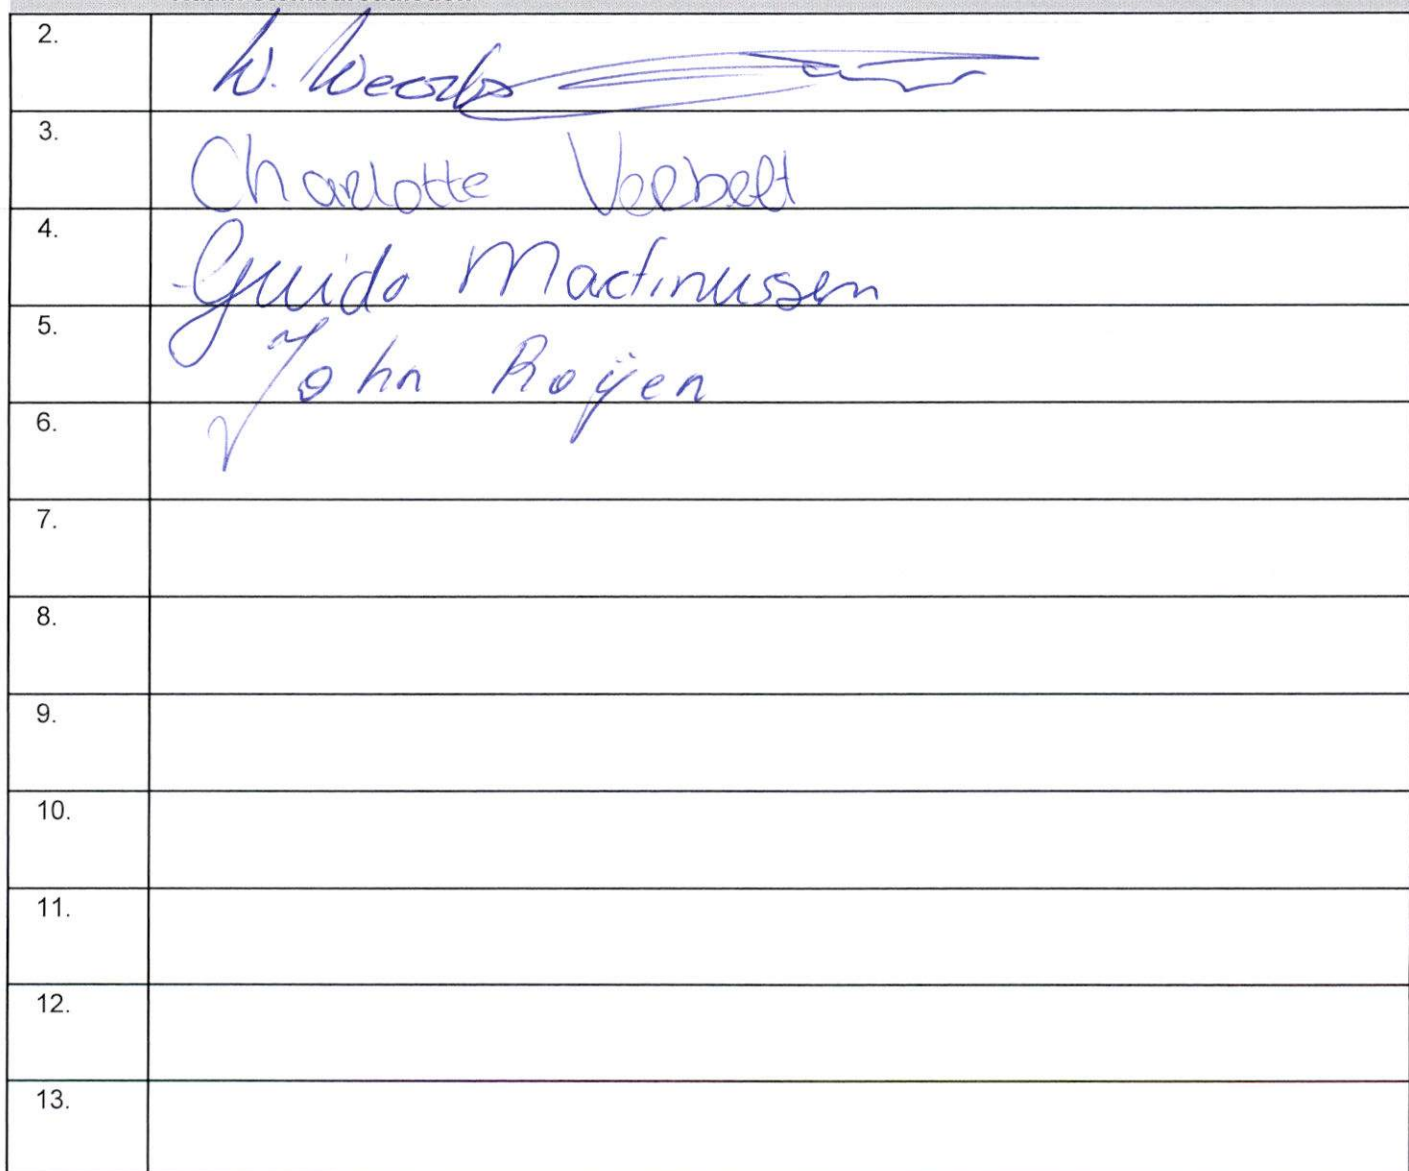 2.
W.
3. Charlotte Verbelt
4. Guido Martinussen
5. John Roijen
6.
7.
8.
9.
10.
11.
12.
13.